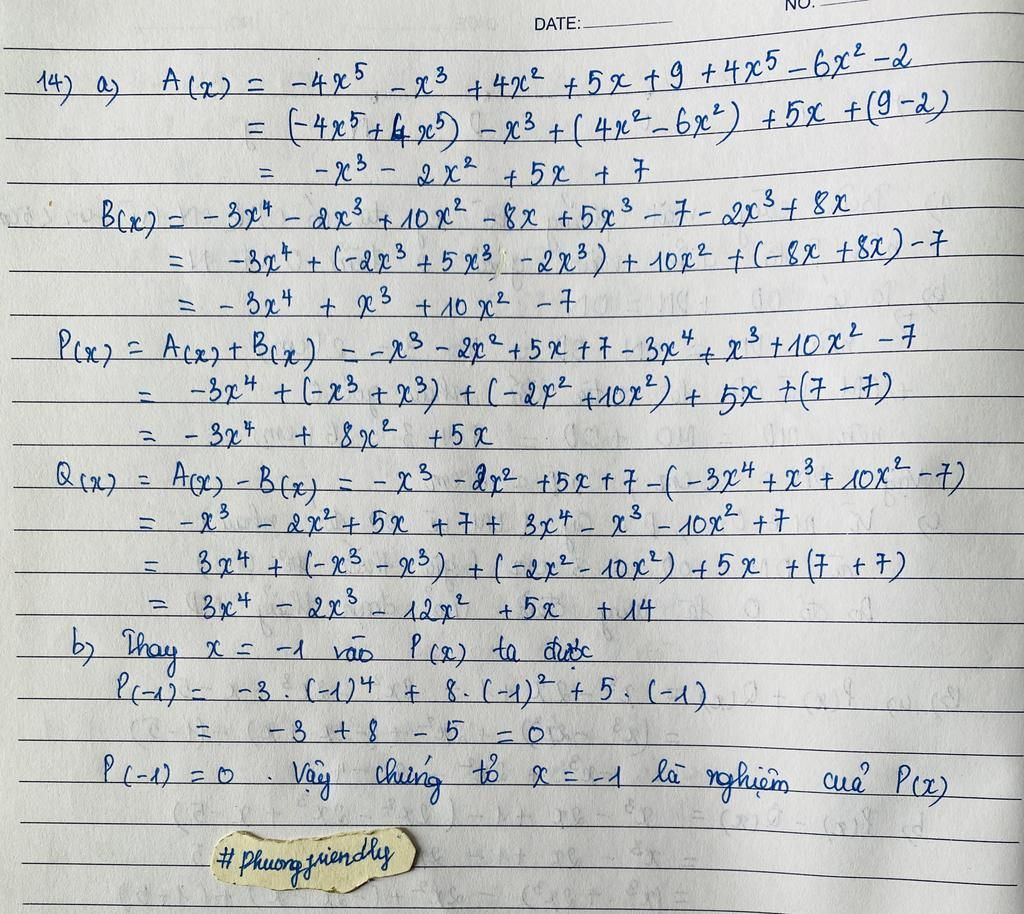 NO.
DATE:
14) a) A(x) = -4x⁵ - x³ + 4x² + 5x + 9 + 4x⁵ - 6x² - 2
= (-4x⁵ + 4x⁵) - x³ + (4x² - 6x²) + 5x + (9 - 2)
= -x³ - 2x² + 5x + 7
B(x) = -3x⁴ - 2x³ + 10x² - 8x + 5x³ - 7 - 2x³ + 8x
= -3x⁴ + (-2x³ + 5x³ - 2x³) + 10x² + (-8x + 8x) - 7
= -3x⁴ + x³ + 10x² - 7
P(x) = A(x) + B(x) = -x³ - 2x² + 5x + 7 - 3x⁴ + x³ + 10x² - 7
= -3x⁴ + (-x³ + x³) + (-2x² + 10x²) + 5x + (7 - 7)
= -3x⁴ + 8x² + 5x
Q(x) = A(x) - B(x) = -x³ - 2x² + 5x + 7 - (-3x⁴ + x³ + 10x² - 7)
= -x³ - 2x² + 5x + 7 + 3x⁴ - x³ - 10x² + 7
= 3x⁴ + (-x³ - x³) + (-2x² - 10x²) + 5x + (7 + 7)
= 3x⁴ - 2x³ - 12x² + 5x + 14
b) Thay x = -1 vào P(x) ta được
P(-1) = -3 . (-1)⁴ + 8 . (-1)² + 5 . (-1)
= -3 + 8 - 5 = 0
P(-1) = 0 . Vậy chứng tỏ x = -1 là nghiệm của P(x)
# Phuongfriendly